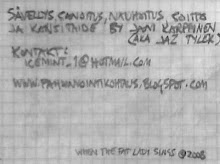 SÄVELLYS, SANOITUS, NAUHOITUS, SOITTO
JA KANSITAIDE BY JANI KARPPINEN
(AKA JAZ TYLER)
KONTAKTI:
ICEMINT_1@HOTMAIL.COM
WWW.PAHANOINTIKOHTAUS.BLOGSPOT.COM
WHEN THE FAT LADY SINGS @2008